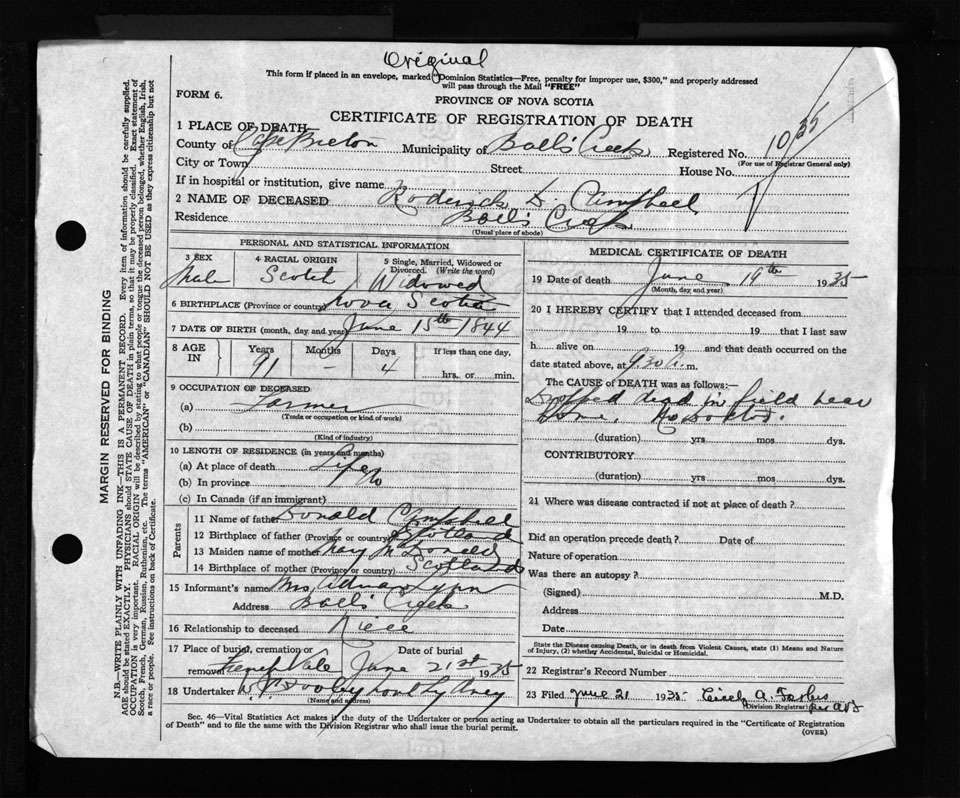 Original
This form if placed in an envelope, marked "Dominion Statistics—Free, penalty for improper use, $300," and properly addressed
will pass through the Mail "FREE"
FORM 6.
PROVINCE OF NOVA SCOTIA
CERTIFICATE OF REGISTRATION OF DEATH
1 PLACE OF DEATH
County of Cape Breton Municipality of Balls Creek Registered No. 1035
(For use of Registrar General only)
City or Town Street House No.
If in hospital or institution, give name
2 NAME OF DECEASED Roderick D. Campbell
Residence Balls Creek
(Usual place of abode)
PERSONAL AND STATISTICAL INFORMATION
3 SEX 4 RACIAL ORIGIN 5 Single, Married, Widowed or
Divorced. (Write the word)
Male Scotch Widowed
6 BIRTHPLACE (Province or country) Nova Scotia
7 DATE OF BIRTH (month, day and year) June 15th 1844
8 AGE IN Years Months Days If less than one day,
91 - 4 hrs. or min.
9 OCCUPATION OF DECEASED
(a) Farmer
(Trade or occupation or kind of work)
(b)
(Kind of industry)
10 LENGTH OF RESIDENCE (in years and months)
(a) At place of death Life
(b) In province Do
(c) In Canada (if an immigrant)
Parents
11 Name of father Donald Campbell
12 Birthplace of father (Province or country) Scotland
13 Maiden name of mother Mary McDonald
14 Birthplace of mother (Province or country) Scotland
15 Informant's name Mrs
Address Balls Creek
16 Relationship to deceased Niece
17 Place of burial, cremation or removal Date of burial
French Vale June 21st 1935
18 Undertaker
(Name and address)
MEDICAL CERTIFICATE OF DEATH
19 Date of death June 19th 1935
(Month, day and year)
20 I HEREBY CERTIFY that I attended deceased from
19 to 19 that I last saw
h alive on 19 and that death occurred on the
date stated above, at 9.30 A. m.
The CAUSE of DEATH was as follows:—
Dropped dead in field near
home. No Doctor.
(duration) yrs mos dys.
CONTRIBUTORY
(duration) yrs mos dys.
21 Where was disease contracted if not at place of death?
Did an operation precede death? Date of
Nature of operation
Was there an autopsy?
(Signed) M.D.
Address
Date
State the Disease causing Death, or in death from Violent Causes, state (1) Means and Nature
of Injury, (2) whether Accidental, Suicidal or Homicidal.
22 Registrar's Record Number
23 Filed June 21 1935 A. Forbes
(Division Registrar) per AB
Sec. 46—Vital Statistics Act makes it the duty of the Undertaker or person acting as Undertaker to obtain all the particulars required in the "Certificate of Registration
of Death" and to file the same with the Division Registrar who shall issue the burial permit.
(OVER)
MARGIN RESERVED FOR BINDING
N.B.—WRITE PLAINLY WITH UNFADING INK—THIS IS A PERMANENT RECORD. Every item of information should be carefully supplied.
AGE should be stated EXACTLY. PHYSICIANS should STATE CAUSE OF DEATH in plain terms, so that it may be properly classified. Exact statement of
OCCUPATION is very important. RACIAL ORIGIN will be described by stating to what people or tongue the deceased person belonged, whether English, Irish,
Scotch, French, German, Russian, Ruthenian, etc. The terms "AMERICAN" or "CANADIAN" SHOULD NOT BE USED as they express citizenship but not
a race or people. See instructions on back of Certificate.